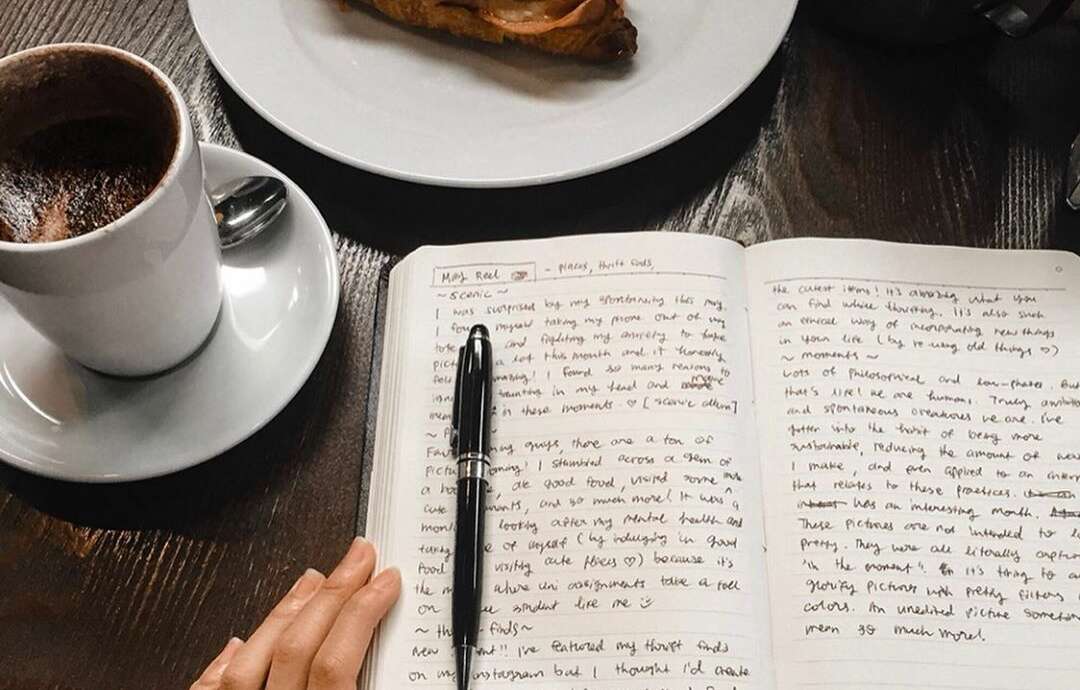 May Reel - places, thrift finds,
~ scenic ~
I was surprised by my spontaneity this may.
I myself taking my phone out of my
tote and fighting my anxiety to take
a lot this month and it honestly
I found so many reasons to
in my head and
in these moments. ♡ [scenic album]
~
guys, there are a ton of
I stumbled across a gem of
a ate good food, visited some
cute and so much more! It was a
looking after my mental health and
of myself (by indulging in good
food visiting cute places ♡) because it's
the where uni assignments take a toll
on student like me ☺
~ finds ~
new !! I've featured my thrift finds
on my instagram but I thought I'd create
the cutest items! It's absurd what you
can find while thrifting. It's also such
an ethical way of incorporating new things
in your life (by re-using old things ♡)
~ moments ~
Lots of philosophical and low-phases. But
that's life! We are humans. Truly
and spontaneous creatures we are. I've
gotten into the habit of being more
sustainable, reducing the amount of
I make, and even applied to an
that relates to these practices.
has an interesting month.
These pictures are not intended to
pretty. They were all literally
"in the moment". It's tiring to
glorify pictures with pretty filters
colors. An unedited picture
mean so much more!